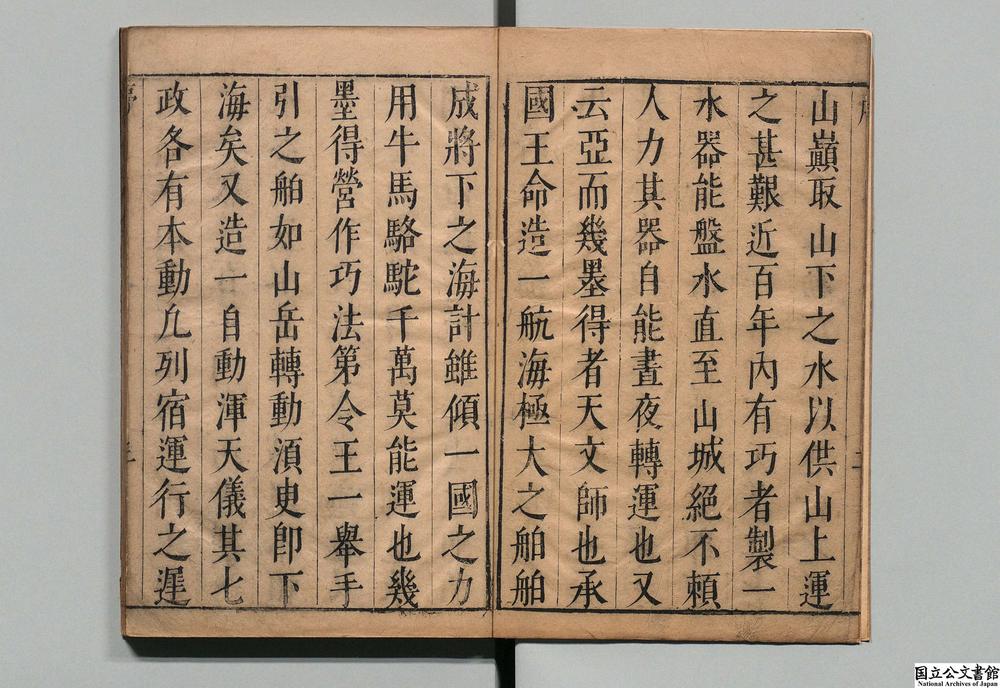 山巔取山下之水以供山上運
之甚艱近百年內有巧者製一
水器能盤水直至山城絕不頼
人力其器自能晝夜轉運也又
云亞而幾墨得者天文師也承
國王命造一航海極大之舶舶
成將下之海計雖傾一國之力
用牛馬駱駝千萬莫能運也幾
墨得營作巧法第令王一舉手
引之舶如山岳轉動湏臾即下
海矣又造一自動渾天儀其七
政各有本動凢列宿運行之遲
国立公文書館
National Archives of Japan